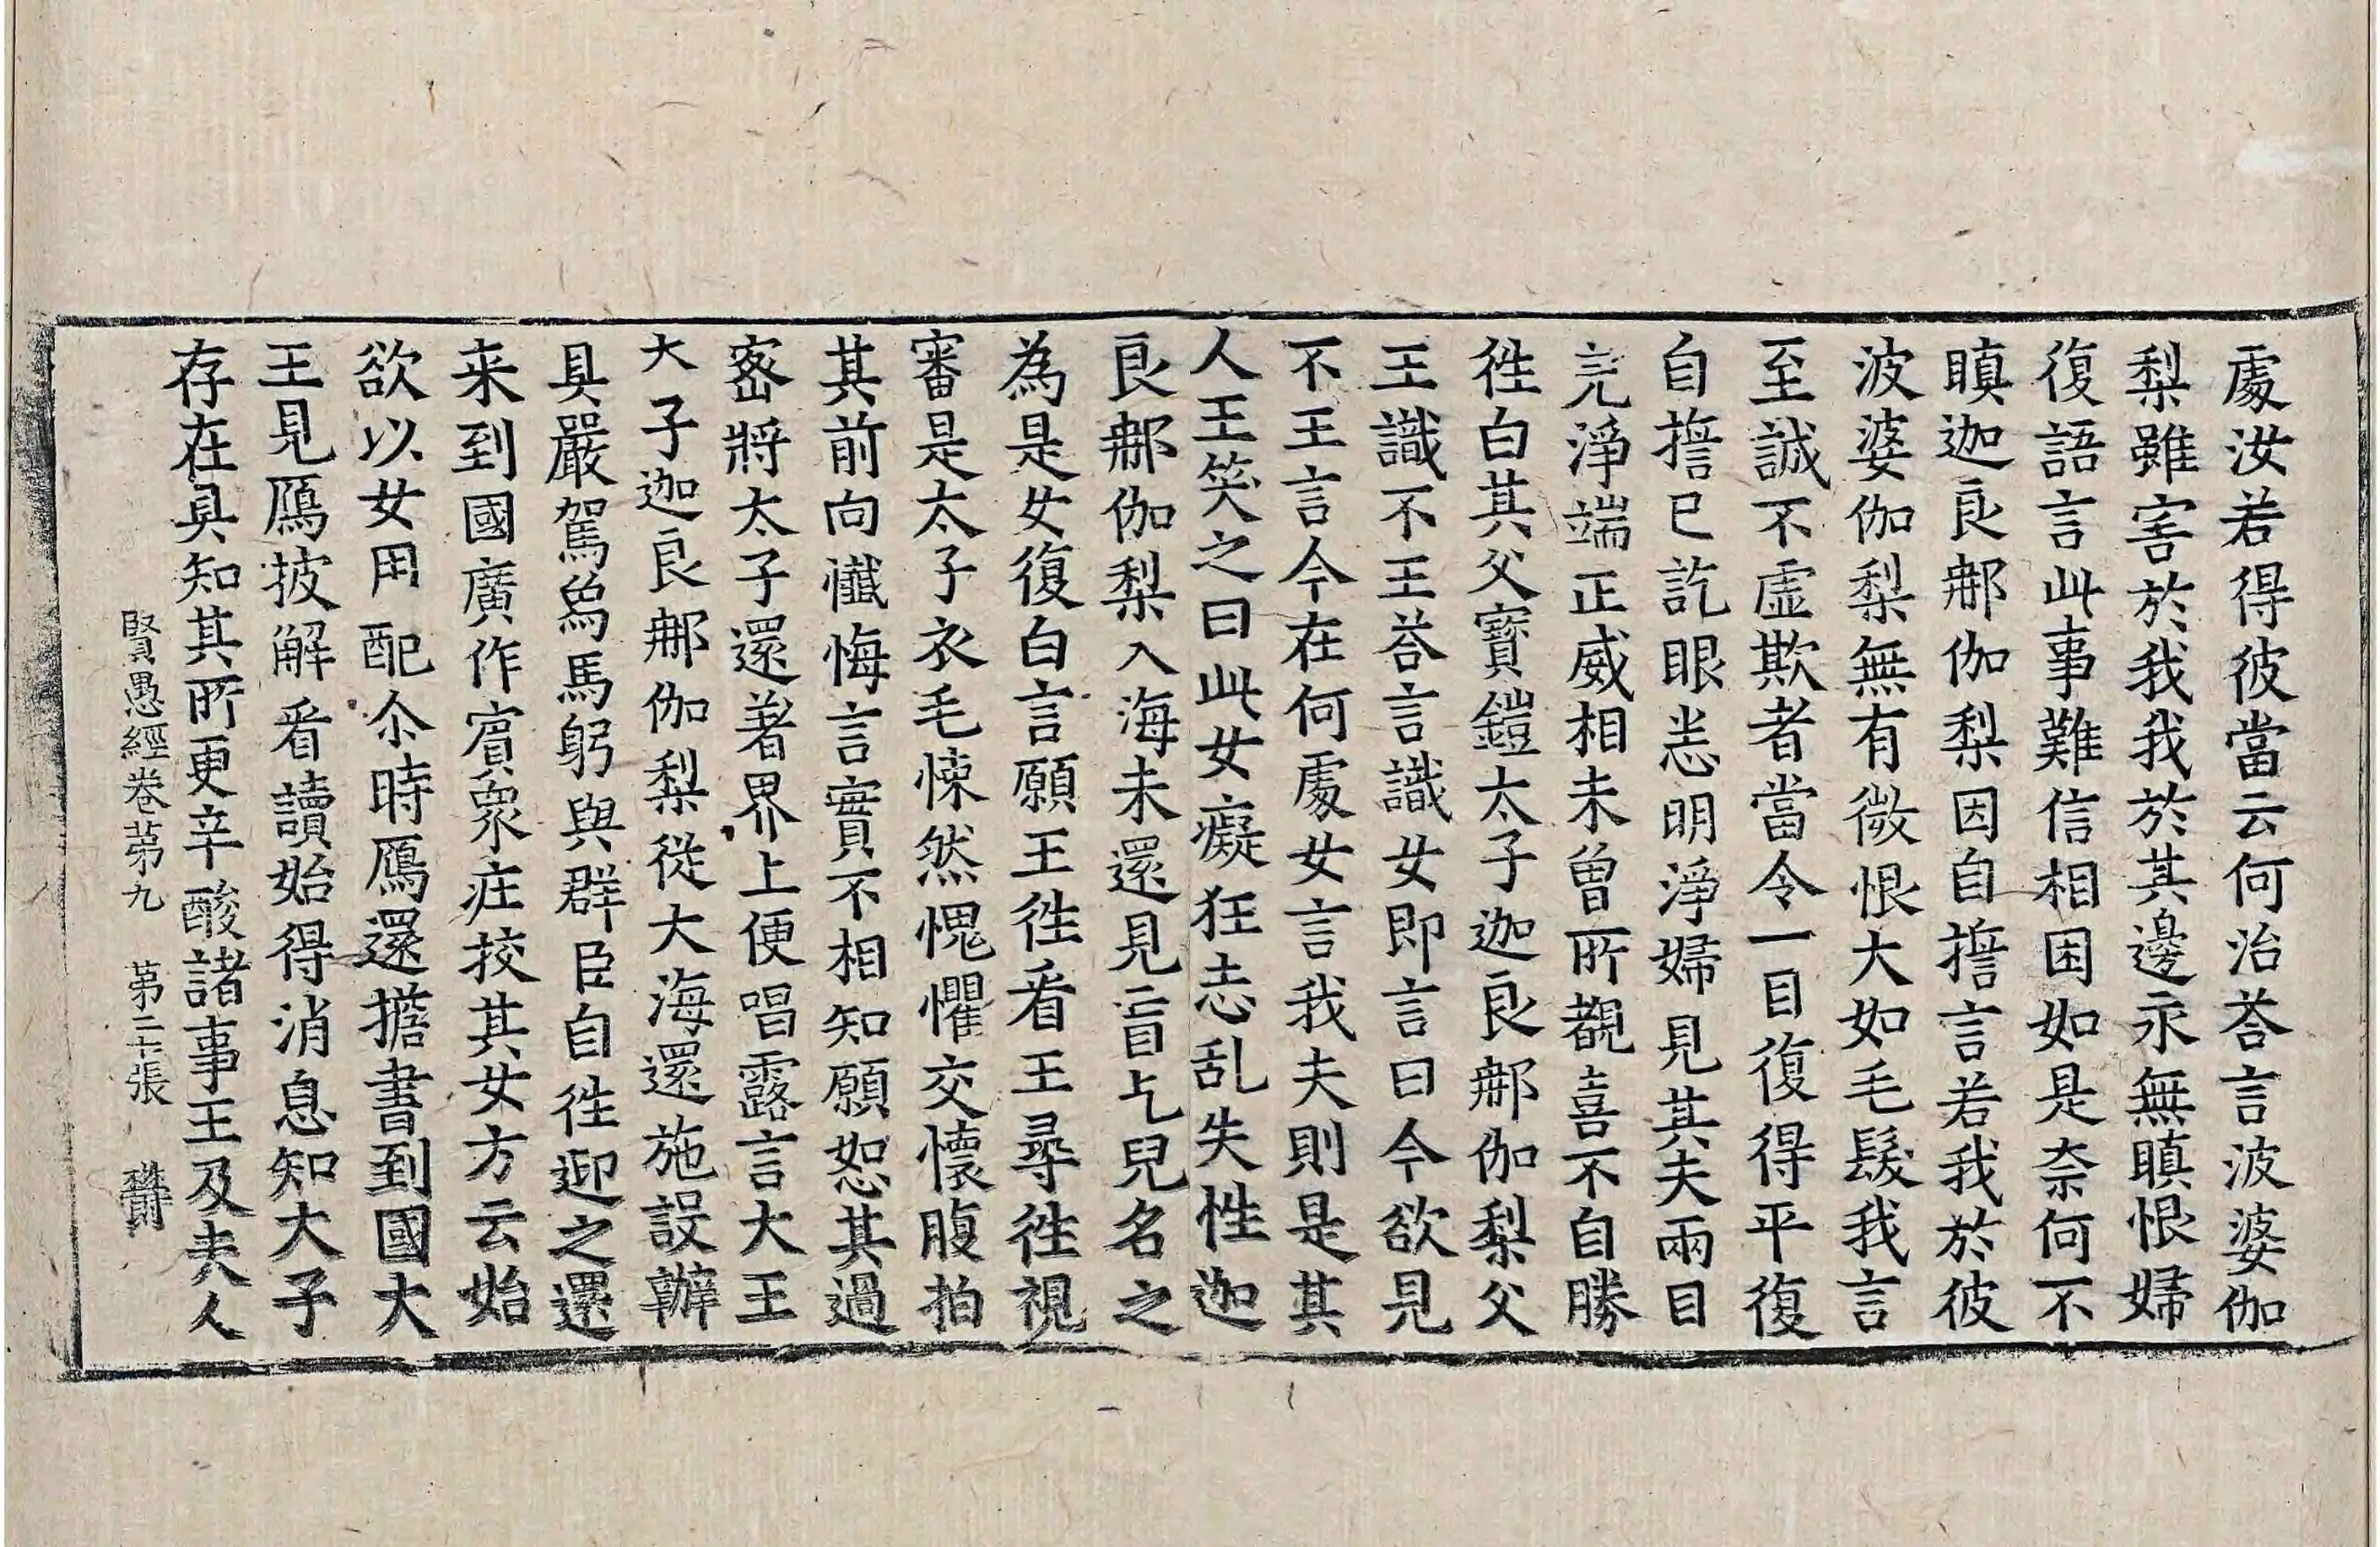 處汝若得彼當云何治荅言波婆伽
梨雖害於我我於其邊永無瞋恨婦
復語言此事難信相困如是奈何不
瞋迦良𨚗伽梨因自擔言若我於彼
波婆伽梨無有微恨大如毛髮我言
至誠不虛欺者當令一目復得平復
自擔已訖眼恙明淨婦見其夫兩目
完淨端正威相未曾所覩喜不自勝
徃白其父寶鎧太子迦良𨚗伽梨父
王識不王荅言識女即言曰今欲見
不王言今在何處女言我夫則是其
人王笑之曰此女癡狂志乱失性迦
良𨚗伽梨入海未還見盲乞兒名之
為是女復白言願王徃看王尋徃視
審是太子衣毛悚然愧懼交懷腹拍
其前向懺悔言實不相知願恕其過
宻將太子還著界上便唱露言大王
大子迦良𨚗伽梨從大海還施設辦
具嚴駕象馬躬與群臣自徃迎之還
来到國廣作賔衆庄挍其女方云始
欲以女用配尒時鴈還擔書到國大
王見鴈披解看讀始得消息知大子
存在具知其所更辛酸諸事王及夫人
賢愚經卷苐九 苐二十張